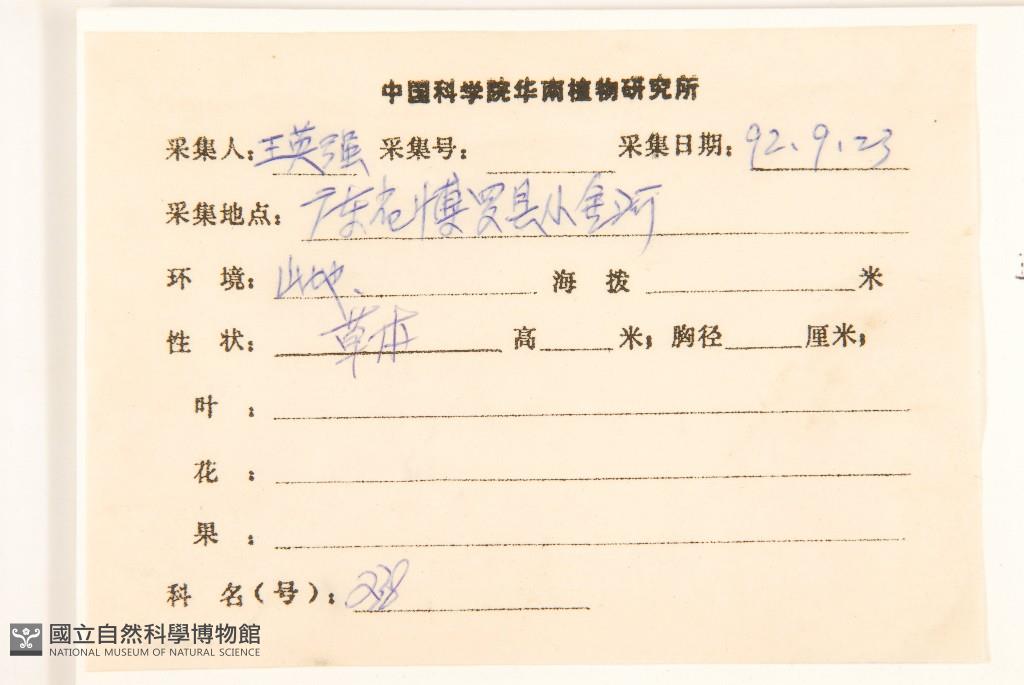 中国科学院华南植物研究所
采集人:王英强 采集号: 采集日期:92.9.23
采集地点:广东省博罗县小金河
环 境:山地、 海 拨 米
性 状: 草本 高 米; 胸径 厘米;
叶 :
花 :
果 :
科 名(号):238
國立自然科學博物館
NATIONAL MUSEUM OF NATURAL SCIENCE